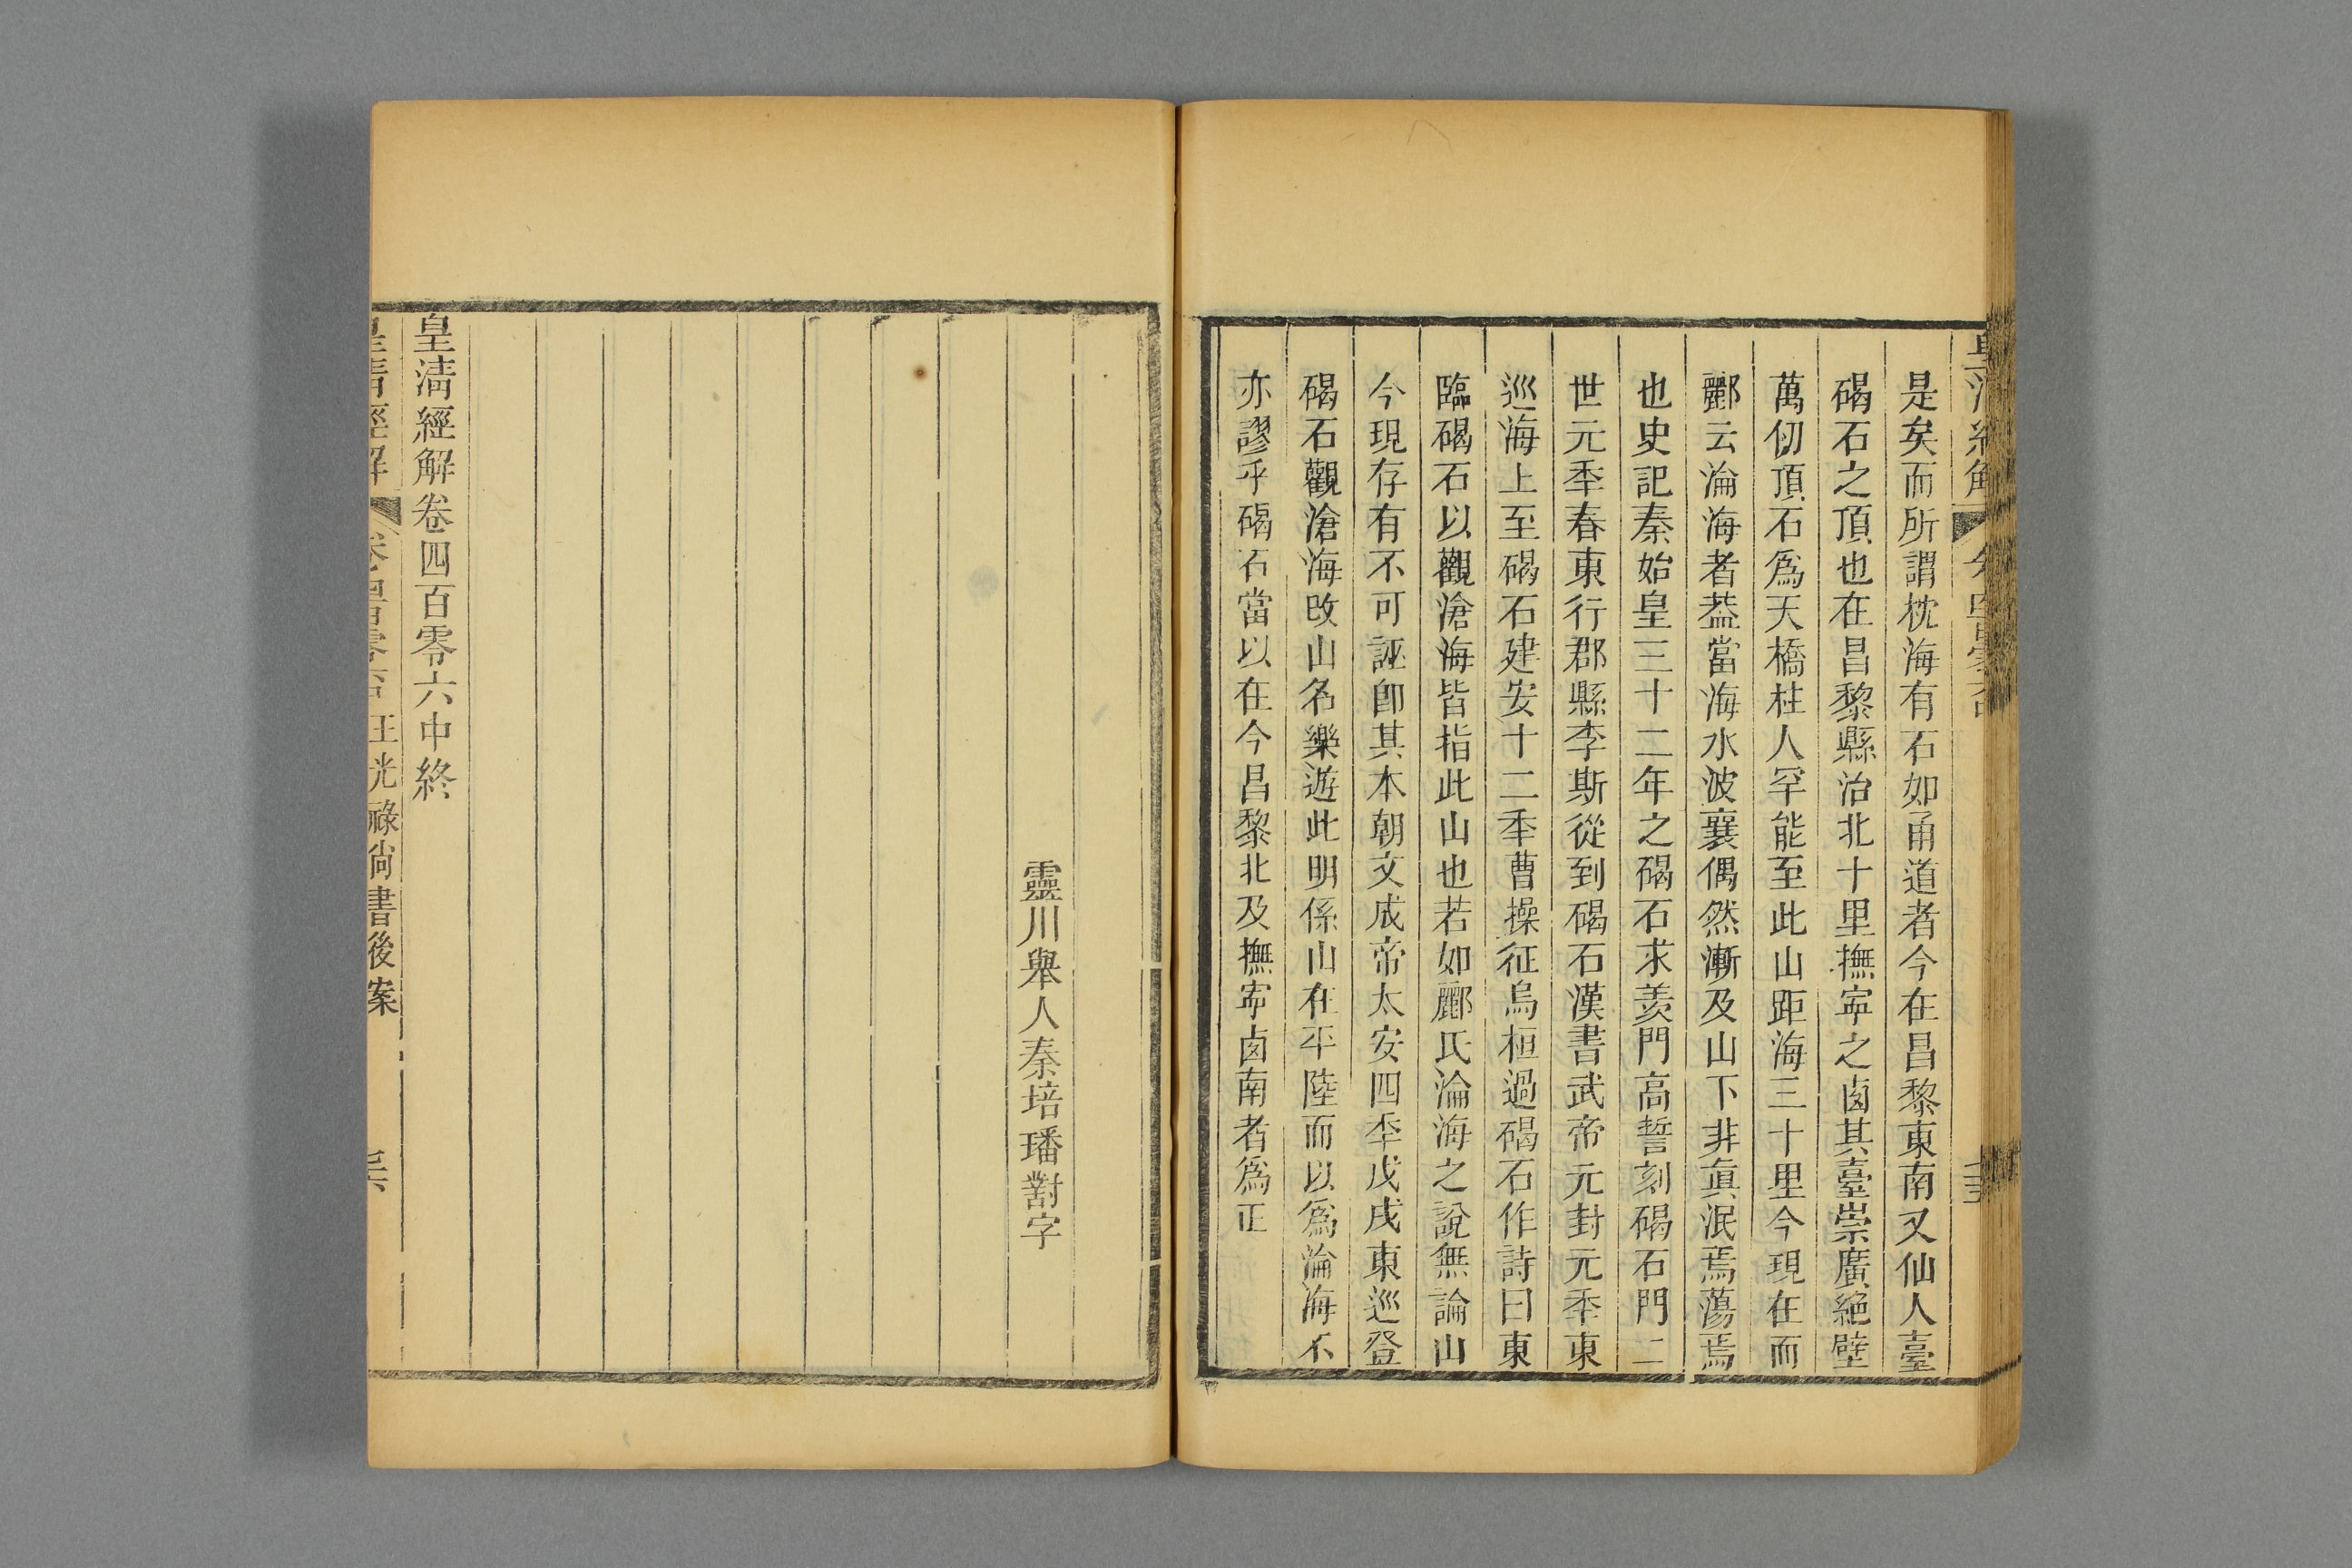 是矣而所謂枕海有石如甬道者今在昌黎東南又仙人臺
碣石之頂也在昌黎縣治北十里撫寧之卤其臺崇廣絕壁
萬仞頂石爲天橋柱人罕能至此山距海三十里今現在而
酈云淪海者葢當海水波襄偶然漸及山下非真泯焉蕩焉
也史記秦始皇三十二年之碣石求羨門高誓刻碣石門二
世元秊春東行郡縣李斯從到碣石漢書武帝元封元秊東
巡海上至碣石建安十二秊曹操征烏桓過碣石作詩曰東
臨碣石以觀滄海皆指此山也若如酈氏淪海之說無論山
今現存有不可誣卽其本朝文成帝太安四秊戊戌東巡登
碣石觀滄海改山名樂遊此明係山在平陸而以爲淪海不
亦謬乎碣石當以在今昌黎北及撫寧卤南者爲正
靈川舉人秦培璠對字
皇淸經解卷四百零六中終
皇淸經解 王光祿尙書後案